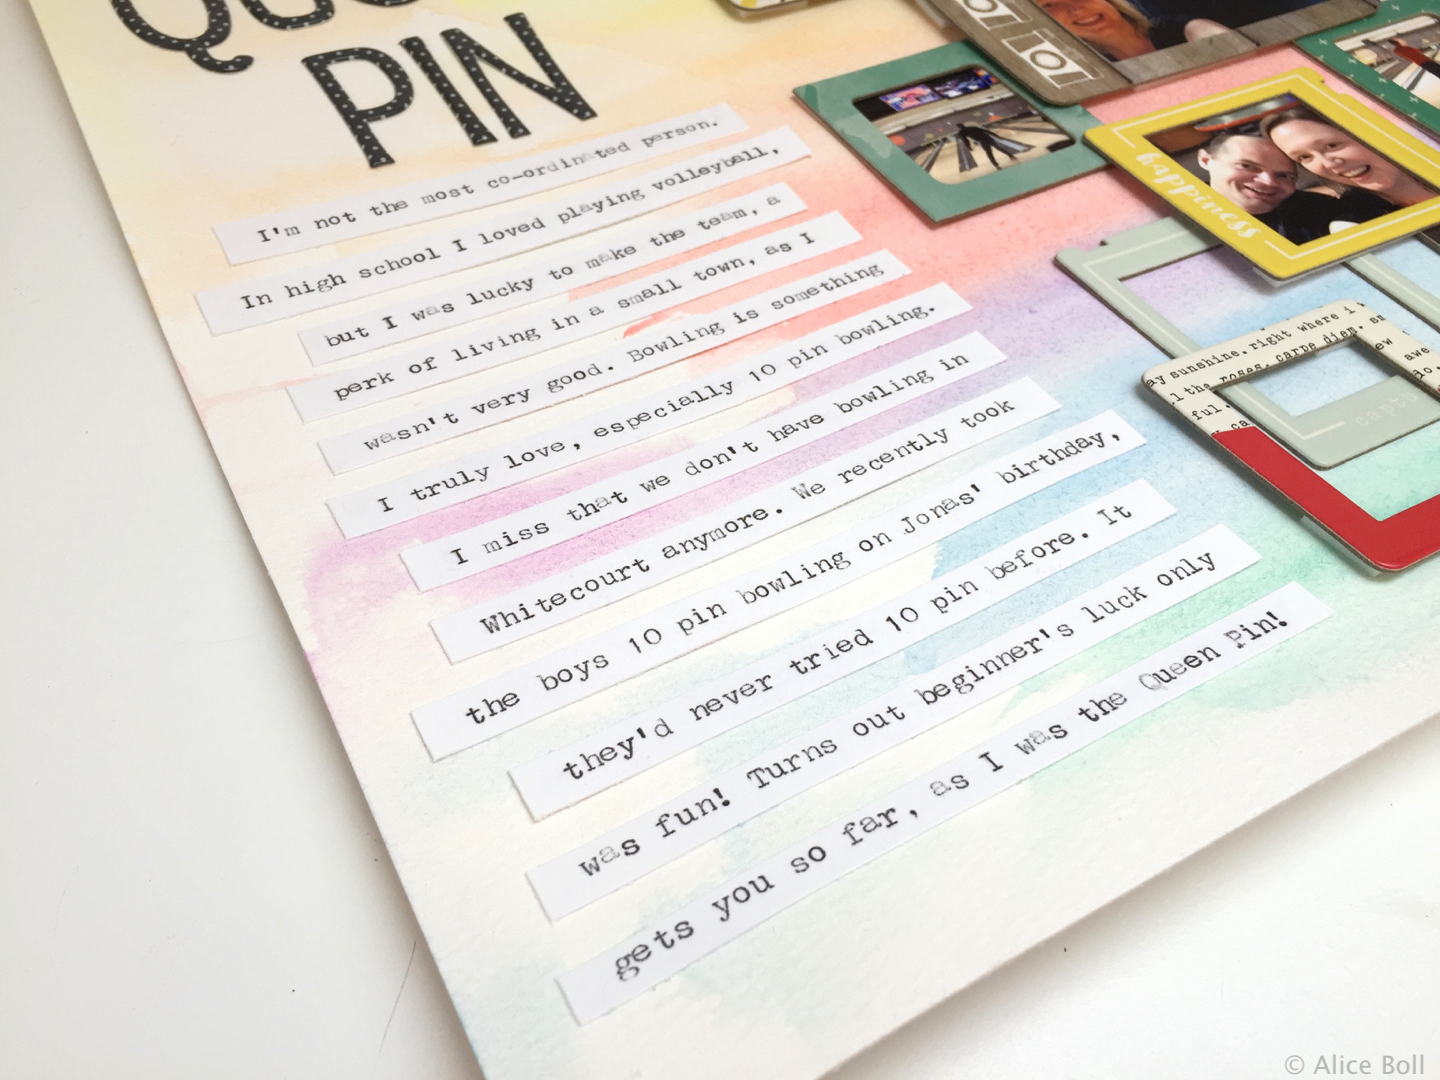 QU
PIN
I'm not the most co-ordinated person.
In high school I loved playing volleyball,
but I was lucky to make the team, a
perk of living in a small town, as I
wasn't very good. Bowling is something
I truly love, especially 10 pin bowling.
I miss that we don't have bowling in
Whitecourt anymore. We recently took
the boys 10 pin bowling on Jonas' birthday,
they'd never tried 10 pin before. It
was fun! Turns out beginner's luck only
gets you so far, as I was the Queen Pin!
happiness
ay sunshine, right where i
l the roses. carpe diem.
ful.
© Alice Boll